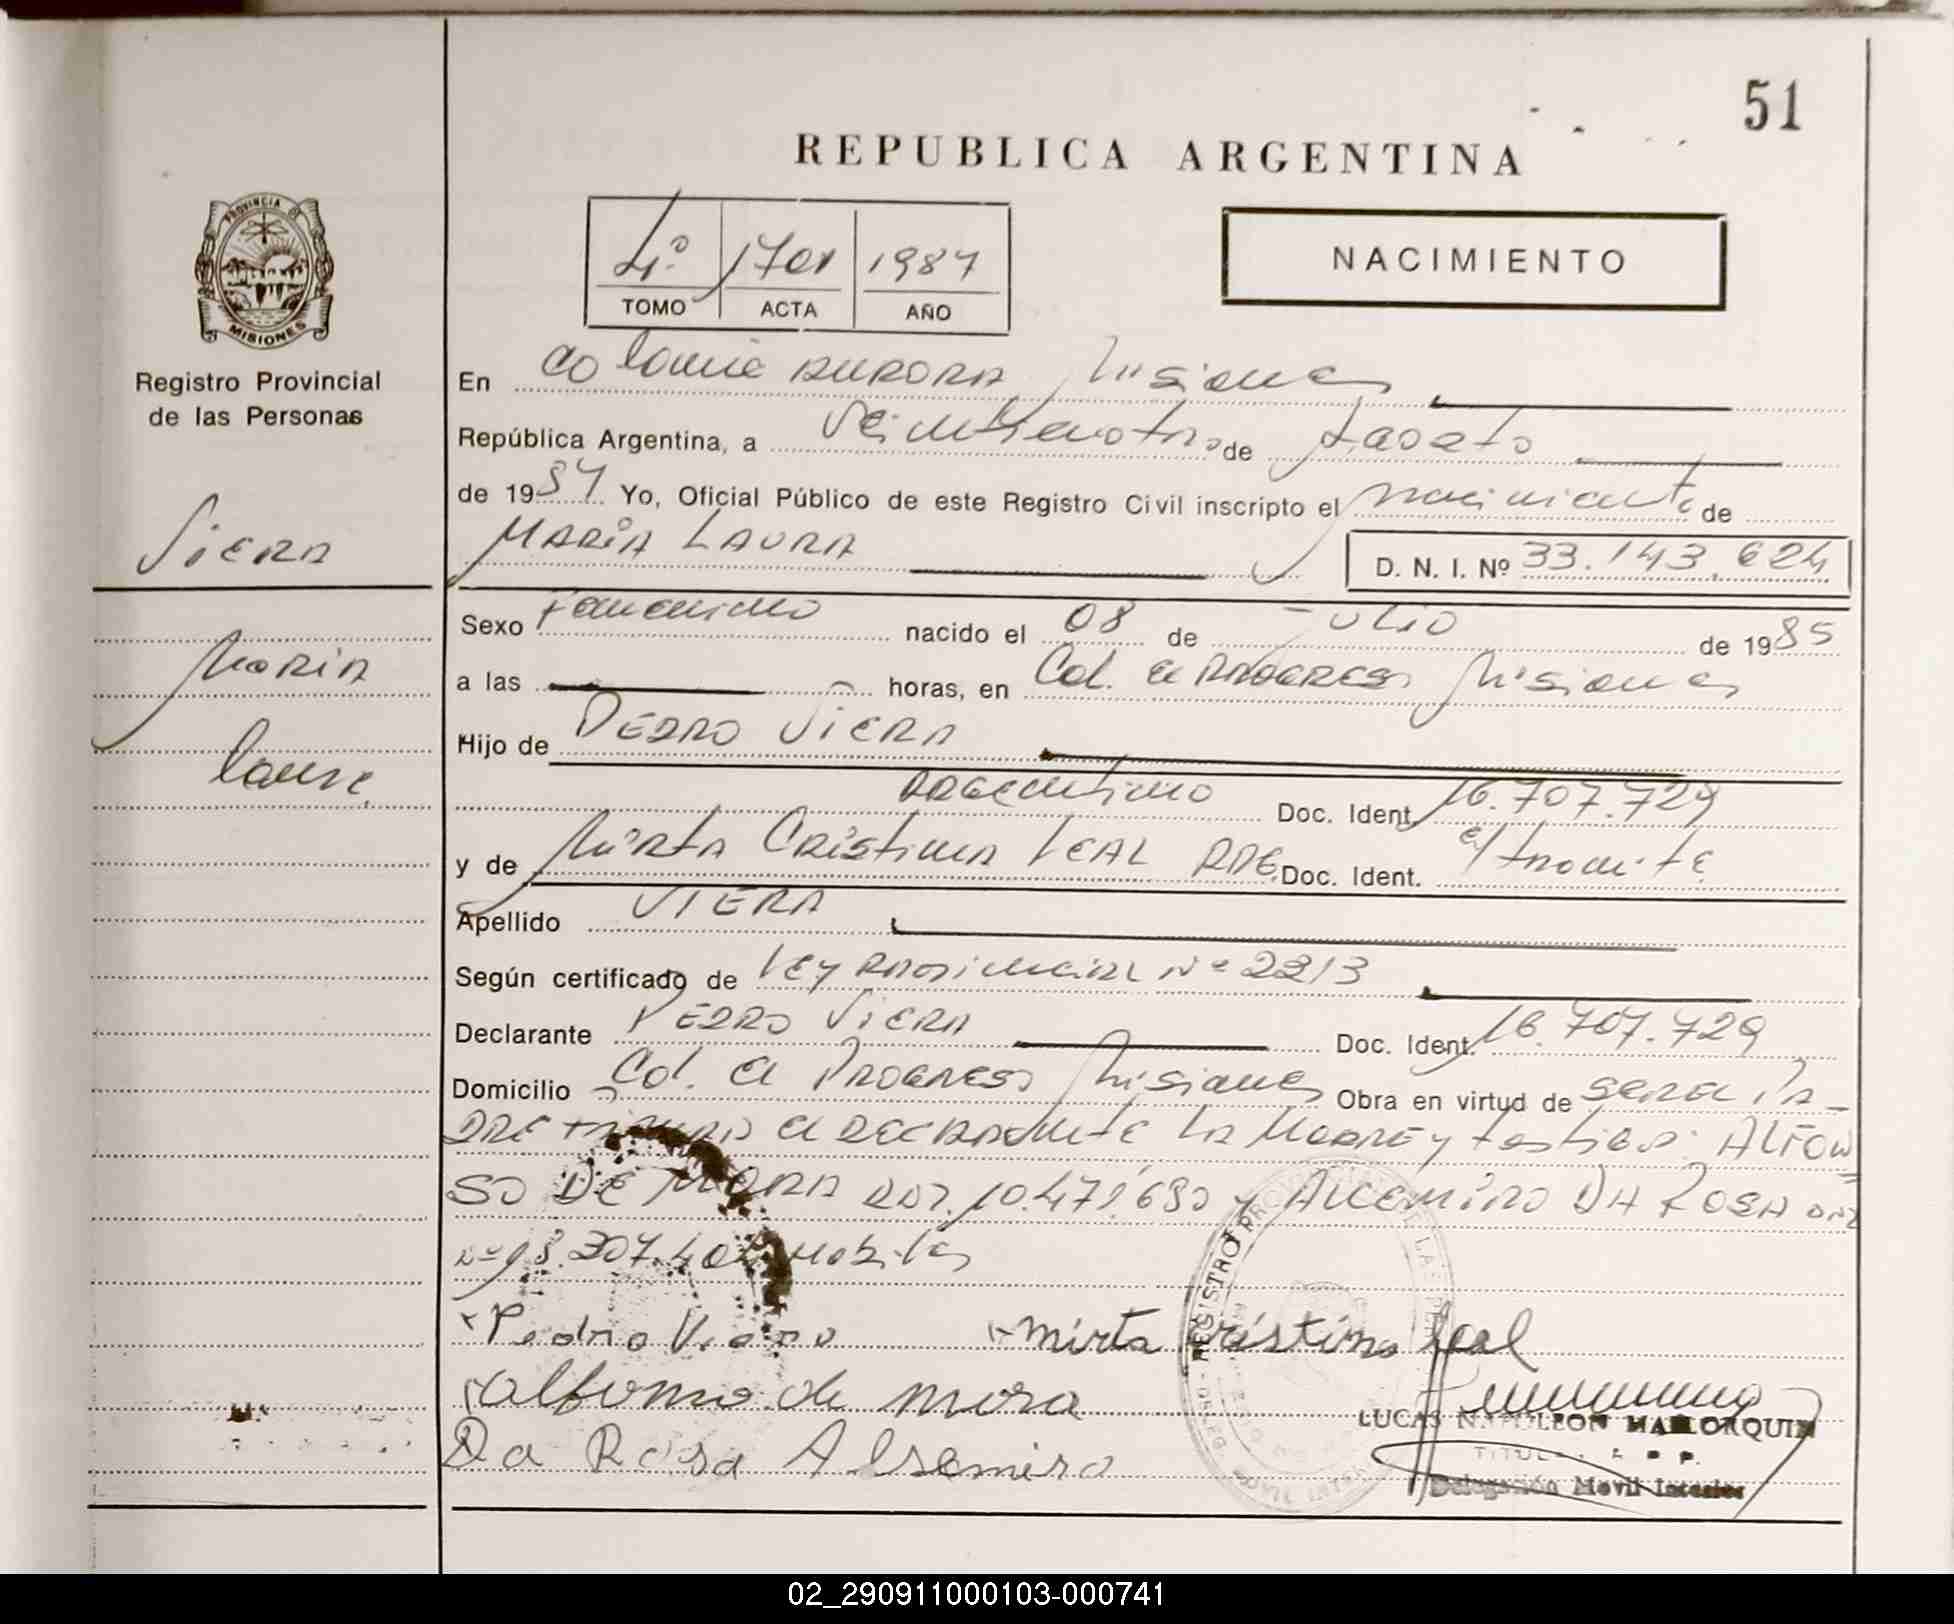 51
REPUBLICA ARGENTINA
PROVINCIA DE
MISIONES
Registro Provincial
de las Personas
4º 1701 1987
TOMO ACTA AÑO
NACIMIENTO
Viera
Maria
Laura
En Colonia AURORA Misiones
República Argentina, a Veinticuatro de Agosto
de 1987 Yo, Oficial Público de este Registro Civil inscripto el nacimiento de
MARIA LAURA D. N. I. Nº 33.143.624
Sexo Femenino nacido el 08 de Julio de 1985
a las horas, en Col. El PROGRESO Misiones
Hijo de PEDRO VIERA
ARGentino Doc. Ident. 16.707.729
y de Mirta Cristina LEAL ARG. Doc. Ident. e/ tramite
Apellido VIERA
Según certificado de Ley Provincial Nº 2213
Declarante PEDRO VIERA Doc. Ident. 16.707.729
Domicilio Col. El PROGRESO Misiones Obra en virtud de ser el PA-
DRE firman el DECLARANTE LA MADRE y testigos: ALFON
SO DE MORA 10.479.680 y ALCEMIRO DA ROSA DNI
Nº habiles
Pedro Viera Mirta Cristina Leal
Alfonso de mora
Da Rosa Alsemiro
LUCAS NAPOLEON MALLORQUIN
TITULAR
Delegación Movil Interior
02_290911000103-000741